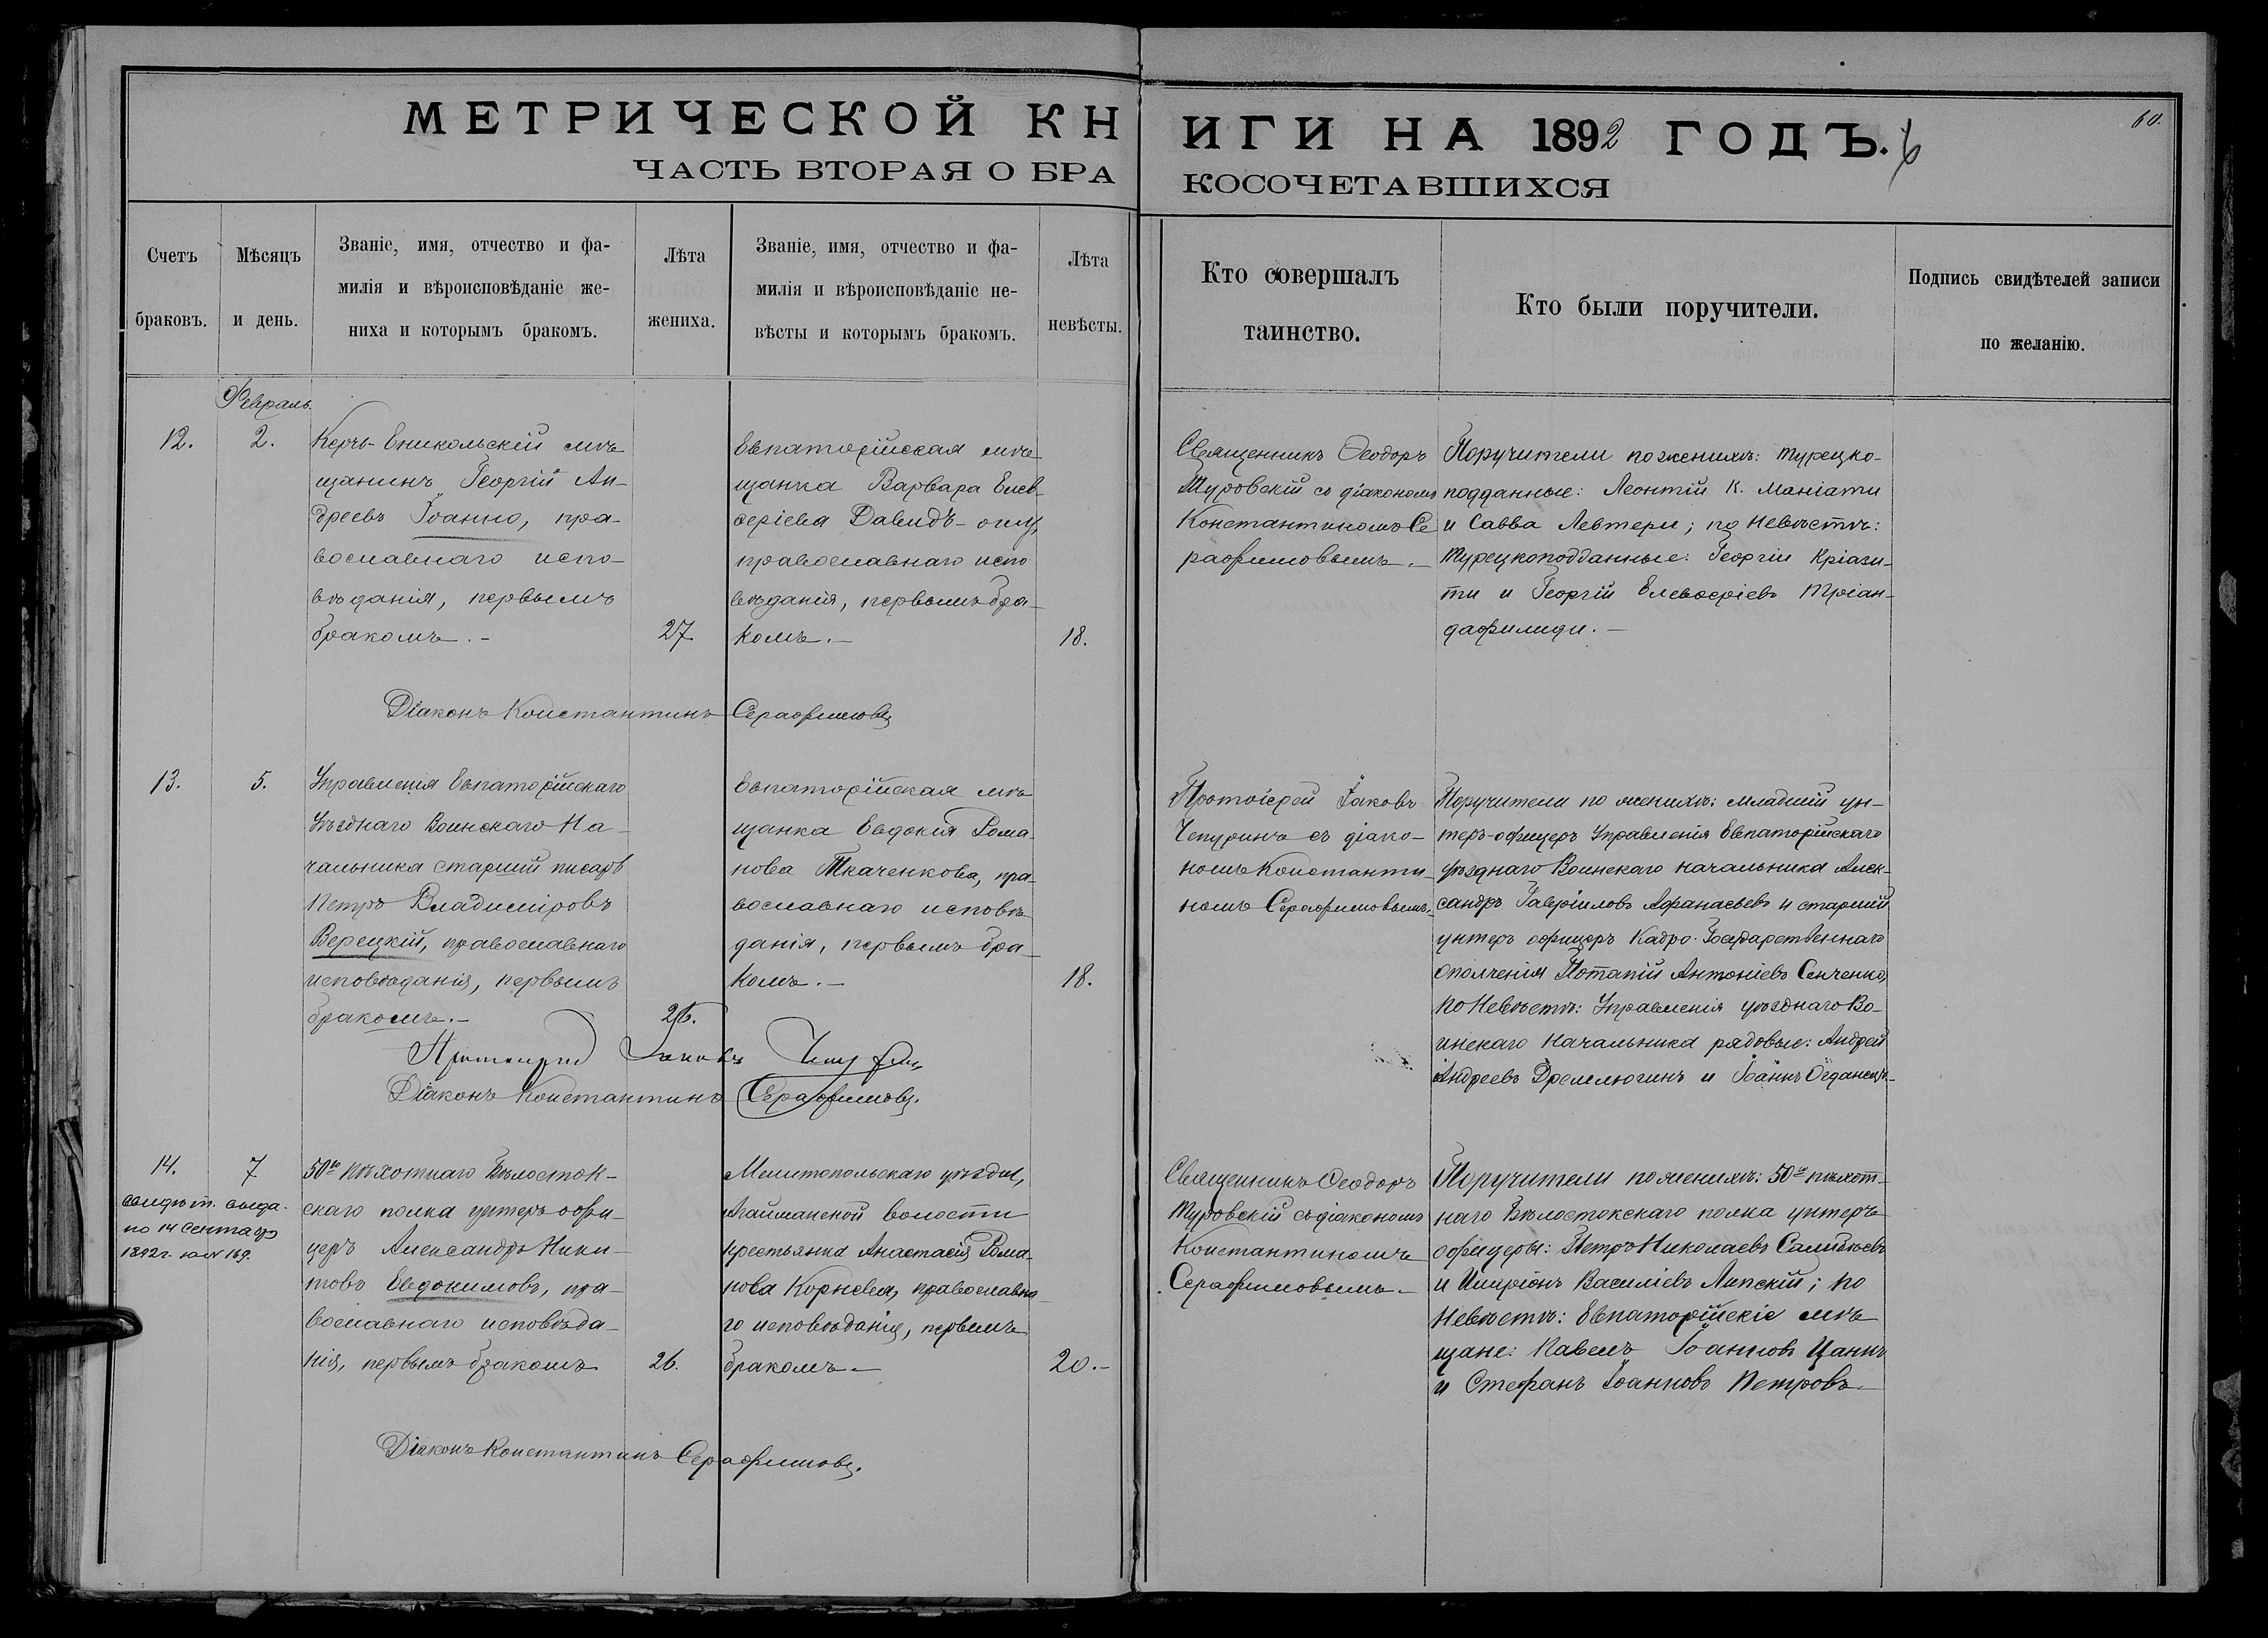 МЕТРИЧЕСКОЙ КНИГИ НА 1892 ГОДЪ.
60.
ЧАСТЬ ВТОРАЯ О БРАКОСОЧЕТАВШИХСЯ
Счетъ
браковъ.
Мѣсяцъ
и день.
Званіе, имя, отчество и фа-
милія и вѣроисповѣданіе же-
ниха и которымъ бракомъ.
Лѣта
жениха.
Званіе, имя, отчество и фа-
милія и вѣроисповѣданіе не-
вѣсты и которымъ бракомъ.
Лѣта
невѣсты.
Кто совершалъ
таинство.
Кто были поручители.
Подпись свидѣтелей записи
по желанію.
Февраль.
12.
2.
Керчь-Еникольскій мѣ-
щанинъ Георгій Ан-
дреевъ Іоанно, пра-
вославнаго испо-
вѣданія, первымъ
бракомъ.-
27.
Евпаторійская мѣ-
щанка Варвара Елев-
ѳеріева Давидъ-оглу,
православнаго испо
вѣданія, первымъ бра-
комъ.-
18.
Священникъ Ѳеодоръ
Туровскій съ діакономъ
Константиномъ Се
рафимовымъ.-
Поручители по женихѣ: турецко-
подданные: Леонтій К. Маніати
и Савва Левтери; по невѣстѣ:
турецкоподданные: Георгій Кріази-
ти и Георгій Елевѳеріевъ Тріан-
дафилиди.-
Діаконъ Константинъ Серафимовъ
13.
5.
Управленія Евпаторійскаго
Уѣзднаго Воинскаго На-
чальника старшій писарь
Петръ Владиміровъ
Верецкій, православнаго
исповѣданія, первымъ
бракомъ.-
26.
Евпаторійская мѣ-
щанка Евдокія Рома-
нова Ткаченкова, пра-
вославнаго исповѣ-
данія, первымъ бра-
комъ.-
18.
Протоіерей Іаковъ
Чепуринъ съ діако-
номъ Константи-
номъ Серафимовымъ.-
Поручители по женихѣ: младшій ун-
теръ-офицеръ Управленія Евпаторійскаго
уѣзднаго Воинскаго начальника Алек-
сандръ Гавріиловъ Афанасьевъ и старшій
унтеръ офицеръ Кадро-Государственнаго
ополченія Потапій Антоніевъ Сенченко,
по невѣстѣ: Управленія уѣзднаго Во-
инскаго начальника рядовые: Андрей
Андреевъ Дремлюгинъ и Іоаннъ
Протоіерей Іаковъ Чепуринъ
Діаконъ Константинъ Серафимовъ.
14.
7
свидѣт. выда-
но 14 Сентября
1892 г. за № 169.
50го пѣхотнаго Бѣлосток-
скаго полка унтеръ офи-
церъ Александръ Ники-
товъ Евдокимовъ, пра-
вославнаго исповѣда-
нія, первымъ бракомъ
26.
Мелитопольскаго уѣзда,
Агайманской волости
крестьянка Анастасія Рома-
нова Корнева, православна-
го исповѣданія, первымъ
бракомъ-
20.-
Священникъ Ѳеодоръ
Туровскій съ діакономъ
Константиномъ
Серафимовымъ.-
Поручители по женихѣ: 50го пѣхот-
наго Бѣлостокскаго полка унтеръ
офицеры: Петръ Николаевъ
и Иларіонъ Василіевъ Липскій; по
невѣстѣ: Евпаторійскіе мѣ-
щане: Павелъ Іоанновъ Цанн
и Стефанъ Іоанновъ Петровъ.-
Діаконъ Константинъ Серафимовъ.